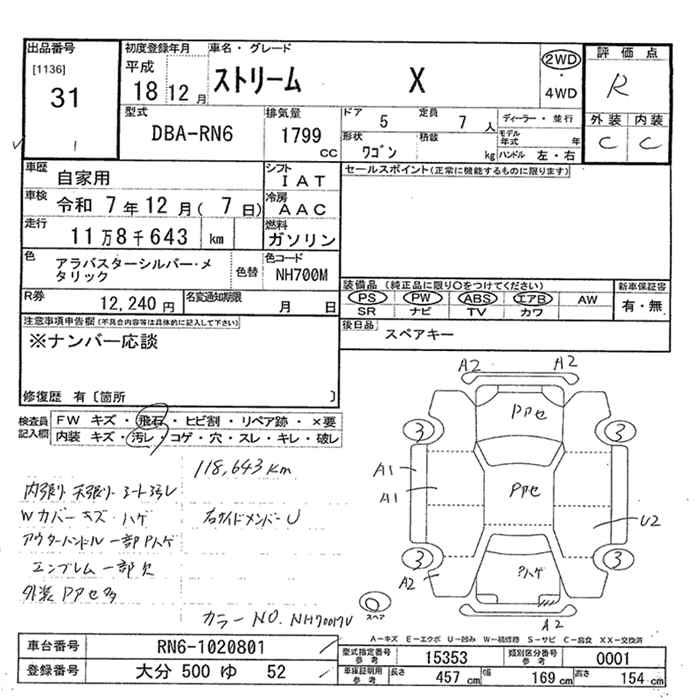 出品番号
[1136]
31
初度登録年月
平成
18 12 月
車名・グレード
ストリーム X
2WD
・
4WD
評価点
R
外装 内装
C C
型式
DBA-RN6
排気量
1799 cc
ドア 5 定員 7 人
形状 ワゴン 積載 kg
ディーラー・並行
モデル年式 年
ハンドル 左・右
車歴 自家用
シフト IAT
車検 令和 7 年 12 月( 7 日)
冷房 AAC
走行 11万8千643 km
燃料 ガソリン
色 アラバスターシルバー・メタリック
色替
色コード NH700M
R券 12,240 円
名変通知期限 月 日
セールスポイント(正常に機能するものに限ります)
装備品(純正品に限り○をつけてください)
PS PW ABS エアB AW
SR ナビ TV カワ
新車保証書
有・無
後日品 スペアキー
注意事項申告欄(不具合内容等は具体的に記入して下さい)
※ナンバー応談
修復歴 有〔箇所 〕
検査員記入欄
FW キズ・飛石・ヒビ割・リペア跡・×要
内装 キズ・汚レ・コゲ・穴・スレ・キレ・破レ
118,643 Km
内張り 天張り シート汚レ
Wカバーキズ・ハゲ
右サイドメンバーU
アウターハンドル 一部Pハゲ
エンブレム 一部欠
外装 PアセUDDER
カラー NO. NH700MV
A2 A2
Pアセ
3 3
A1
A1
Pアセ
U2
3 3
A2
Pハゲ
スペア
A2
A-キズ E-エクボ U-凹み W-補修跡 S-サビ C-腐食 XX-交換済
車台番号 RN6-1020801
登録番号 大分 500 ゆ 52
型式指定番号 参考 15353
類別区分番号 参考 0001
車検証明用 参考 長さ 457 cm 幅 169 cm 高さ 154 cm